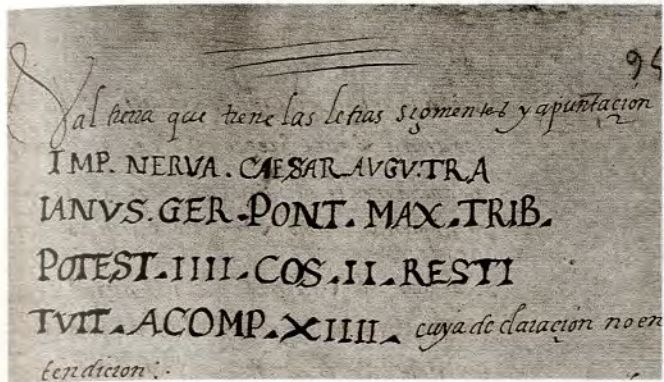 95
Valtierra que tiene las letras sigmentes y apuntaçion
IMP. NERVA. CAESAR AVGV. TRA
IANVS. GER. PONT. MAX. TRIB.
POTEST. IIII. COS. II. RESTI
TVIT. ACOMP. XIIII. cuya declaraçion no en
tendieron:.